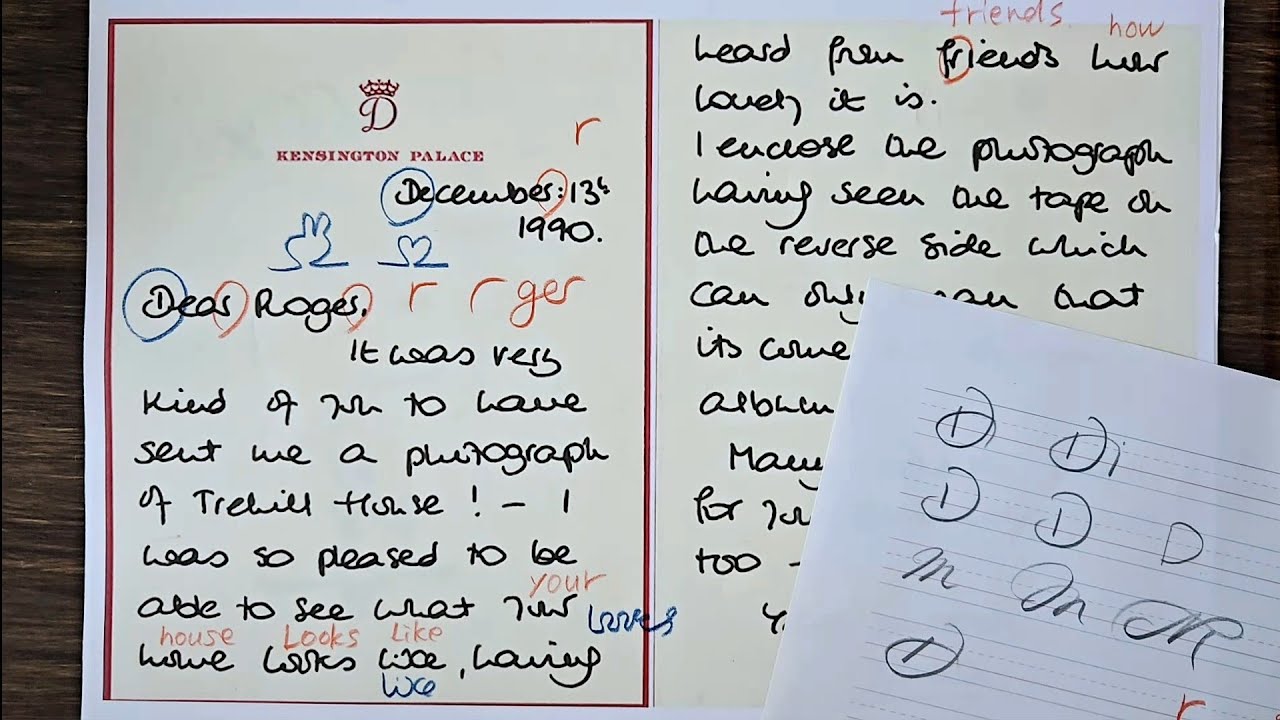 D
KENSINGTON PALACE
r
December: 13th
1990.
Dear Roger,
r r ger
It was very
kind of you to have
sent me a photograph
of Trehill House! - I
was so pleased to be
your
able to see what your
loves
house Looks Like
home looks like, having
like
friends how
heard from friends how
lovely it is.
I enclose the photograph
having seen the tape on
the reverse side which
can only mean that
its come
album
Many
for you
too -
Di Di
D D D
m m
D
r